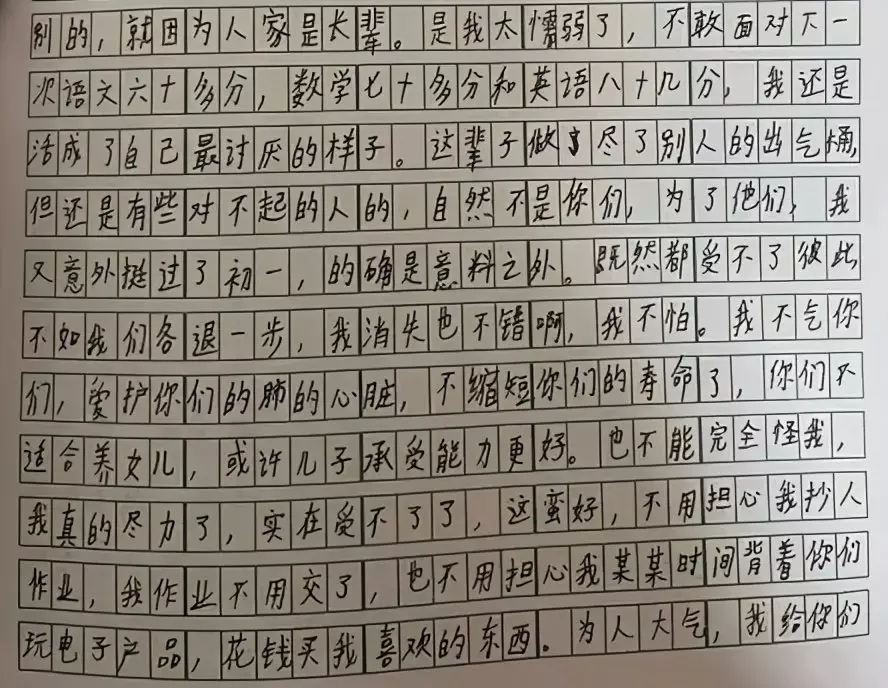 别的，就因为人家是长辈。是我太懦弱了，不敢面对下一
次语文六十多分，数学七十多分和英语八十几分，我还是
活成了自己最讨厌的样子。这辈子做尽了别人的出气桶，
但还是有些对不起的人的，自然不是你们，为了他们，我
又意外挺过了初一，的确是意料之外。既然都受不了彼此
不如我们各退一步，我消失也不错啊，我不怕。我不气你
们，爱护你们的肺的心脏，不缩短你们的寿命了，你们不
适合养女儿，或许儿子承受能力更好。也不能完全怪我，
我真的尽力了，实在受不了了，这蛮好，不用担心我抄人
作业，我作业不用交了，也不用担心我某某时间背着你们
玩电子产品，花钱买我喜欢的东西。为人大气，我给你们